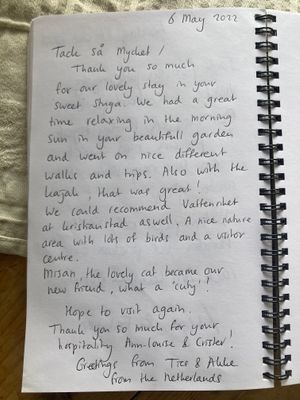 6 May 2022
Tack så mycket /
Thank you so much
for our lovely stay in your
sweet stuga. We had a great
time relaxing in the morning
sun in your beautifull garden
and went on nice different
walks and trips. Also with the
kajak, that was great!
We could recommend Vattenriket
at kristianstad aswell. A nice nature
area with lots of birds and a visitor
centre.
Misan, the lovely cat became our
new friend, what a 'cuty'!
Hope to visit again.
Thank you so much for your
hospitality Ann-Louise & Crister!
Greetings from Ties &
from the Netherlands